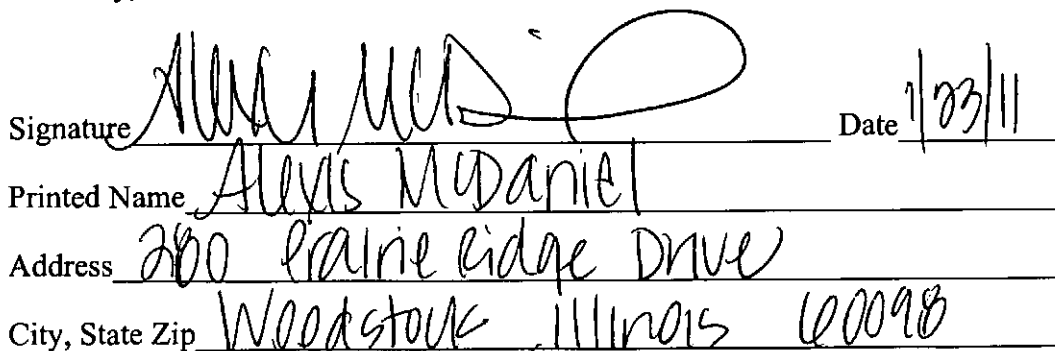 Signature Alexis McD Date 1/23/11
Printed Name Alexis McDaniel
Address 280 Prairie Ridge Drive
City, State Zip Woodstock Illinois 60098